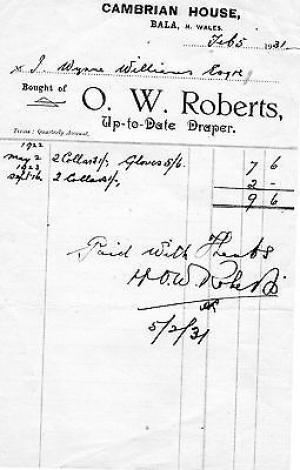 CAMBRIAN HOUSE,
BALA, N. WALES.
Feb 5 1931
J. Wynne Williams Esqre
Bought of
O. W. Roberts,
Up-to-Date Draper.
Terms: Quarterly Account.
1922
May 2 2 Collars 1/- Gloves 5/6. 7 6
1923
Sept 16 2 Collars 1/- 2 -
9 6
Paid with Thanks
O W Roberts
5/2/31